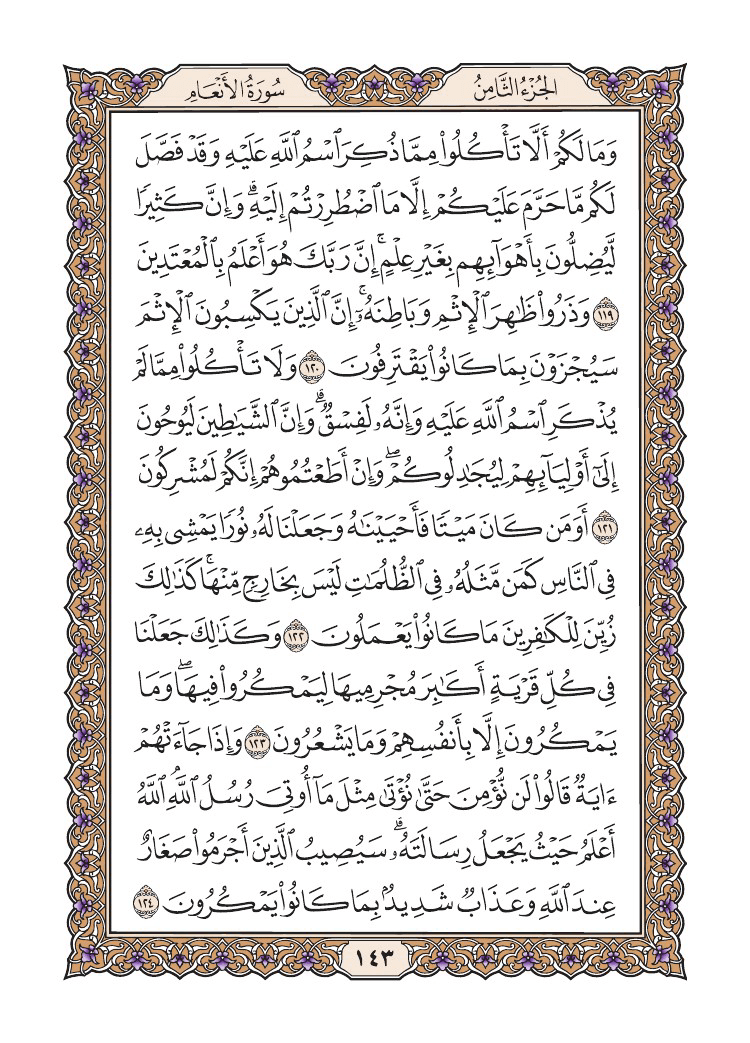 الجُزْءُ الثَّامِنُ
سُورَةُ الأَنْعَامِ
وَمَا لَكُمْ أَلَّا تَأْكُلُوا۟ مِمَّا ذُكِرَ ٱسْمُ ٱللَّهِ عَلَيْهِ وَقَدْ فَصَّلَ
لَكُم مَّا حَرَّمَ عَلَيْكُمْ إِلَّا مَا ٱضْطُرِرْتُمْ إِلَيْهِ ۗ وَإِنَّ كَثِيرًا
لَّيُضِلُّونَ بِأَهْوَآئِهِم بِغَيْرِ عِلْمٍ ۚ إِنَّ رَبَّكَ هُوَ أَعْلَمُ بِٱلْمُعْتَدِينَ
١١٩ وَذَرُوا۟ ظَـٰهِرَ ٱلْإِثْمِ وَبَاطِنَهُۥٓ ۚ إِنَّ ٱلَّذِينَ يَكْسِبُونَ ٱلْإِثْمَ
سَيُجْزَوْنَ بِمَا كَانُوا۟ يَقْتَرِفُونَ ١٢٠ وَلَا تَأْكُلُوا۟ مِمَّا لَمْ
يُذْكَرِ ٱسْمُ ٱللَّهِ عَلَيْهِ وَإِنَّهُۥ لَفِسْقٌ ۗ وَإِنَّ ٱلشَّيَـٰطِينَ لَيُوحُونَ
إِلَىٰٓ أَوْلِيَآئِهِمْ لِيُجَـٰدِلُوكُمْ ۖ وَإِنْ أَطَعْتُمُوهُمْ إِنَّكُمْ لَمُشْرِكُونَ
١٢١ أَوَمَن كَانَ مَيْتًا فَأَحْيَيْنَـٰهُ وَجَعَلْنَا لَهُۥ نُورًا يَمْشِى بِهِۦ
فِى ٱلنَّاسِ كَمَن مَّثَلُهُۥ فِى ٱلظُّلُمَـٰتِ لَيْسَ بِخَارِجٍ مِّنْهَا ۚ كَذَٰلِكَ
زُيِّنَ لِلْكَـٰفِرِينَ مَا كَانُوا۟ يَعْمَلُونَ ١٢٢ وَكَذَٰلِكَ جَعَلْنَا
فِى كُلِّ قَرْيَةٍ أَكَـٰبِرَ مُجْرِمِيهَا لِيَمْكُرُوا۟ فِيهَا ۖ وَمَا
يَمْكُرُونَ إِلَّا بِأَنفُسِهِمْ وَمَا يَشْعُرُونَ ١٢٣ وَإِذَا جَآءَتْهُمْ
ءَايَةٌ قَالُوا۟ لَن نُّؤْمِنَ حَتَّىٰ نُؤْتَىٰ مِثْلَ مَآ أُوتِىَ رُسُلُ ٱللَّهِ ۘ ٱللَّهُ
أَعْلَمُ حَيْثُ يَجْعَلُ رِسَالَتَهُۥ ۗ سَيُصِيبُ ٱلَّذِينَ أَجْرَمُوا۟ صَغَارٌ
عِندَ ٱللَّهِ وَعَذَابٌ شَدِيدٌۢ بِمَا كَانُوا۟ يَمْكُرُونَ ١٢٤
١٤٣